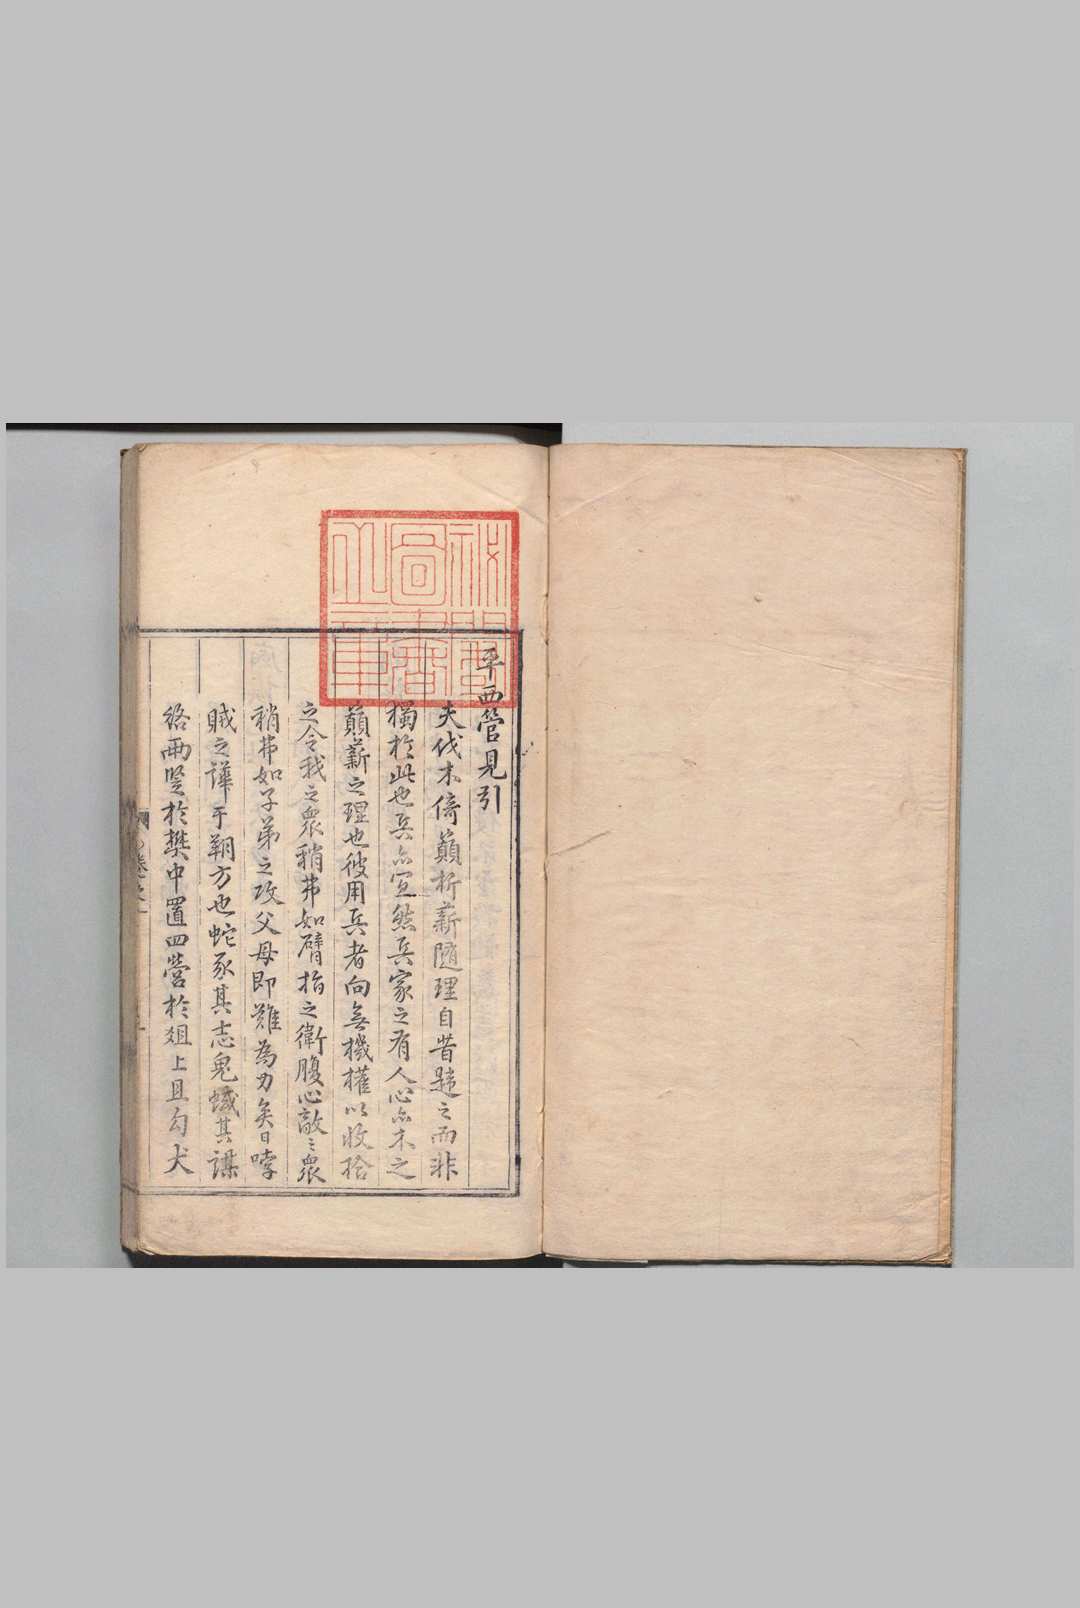 平西管見引
夫伐木倚巔析薪隨理自昔趨之而非
獨於此也兵亦宜然兵家之有人心亦木之
巔薪之理也彼用兵者向無機權以收拾
之令我之眾稍弗如臂指之衛腹心敵〻眾
稍弗如子弟之攻父母即難為力矣日哱
賊之譁于朔方也蛇豕其志鬼蜮其謀
絡兩豎於樊中置四營於俎上且勾犬
秘閣
圖書
之章